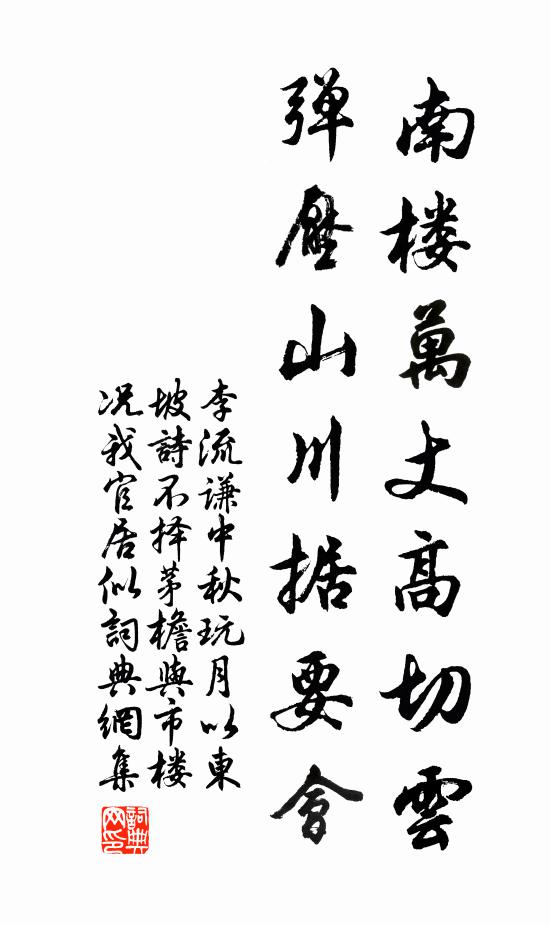 南楼萬丈高切雲
弹壓山川据要會
李流谦中秋玩月以東
坡詩不择茅檐與市楼
况我官居似詞典網集
詞典网印